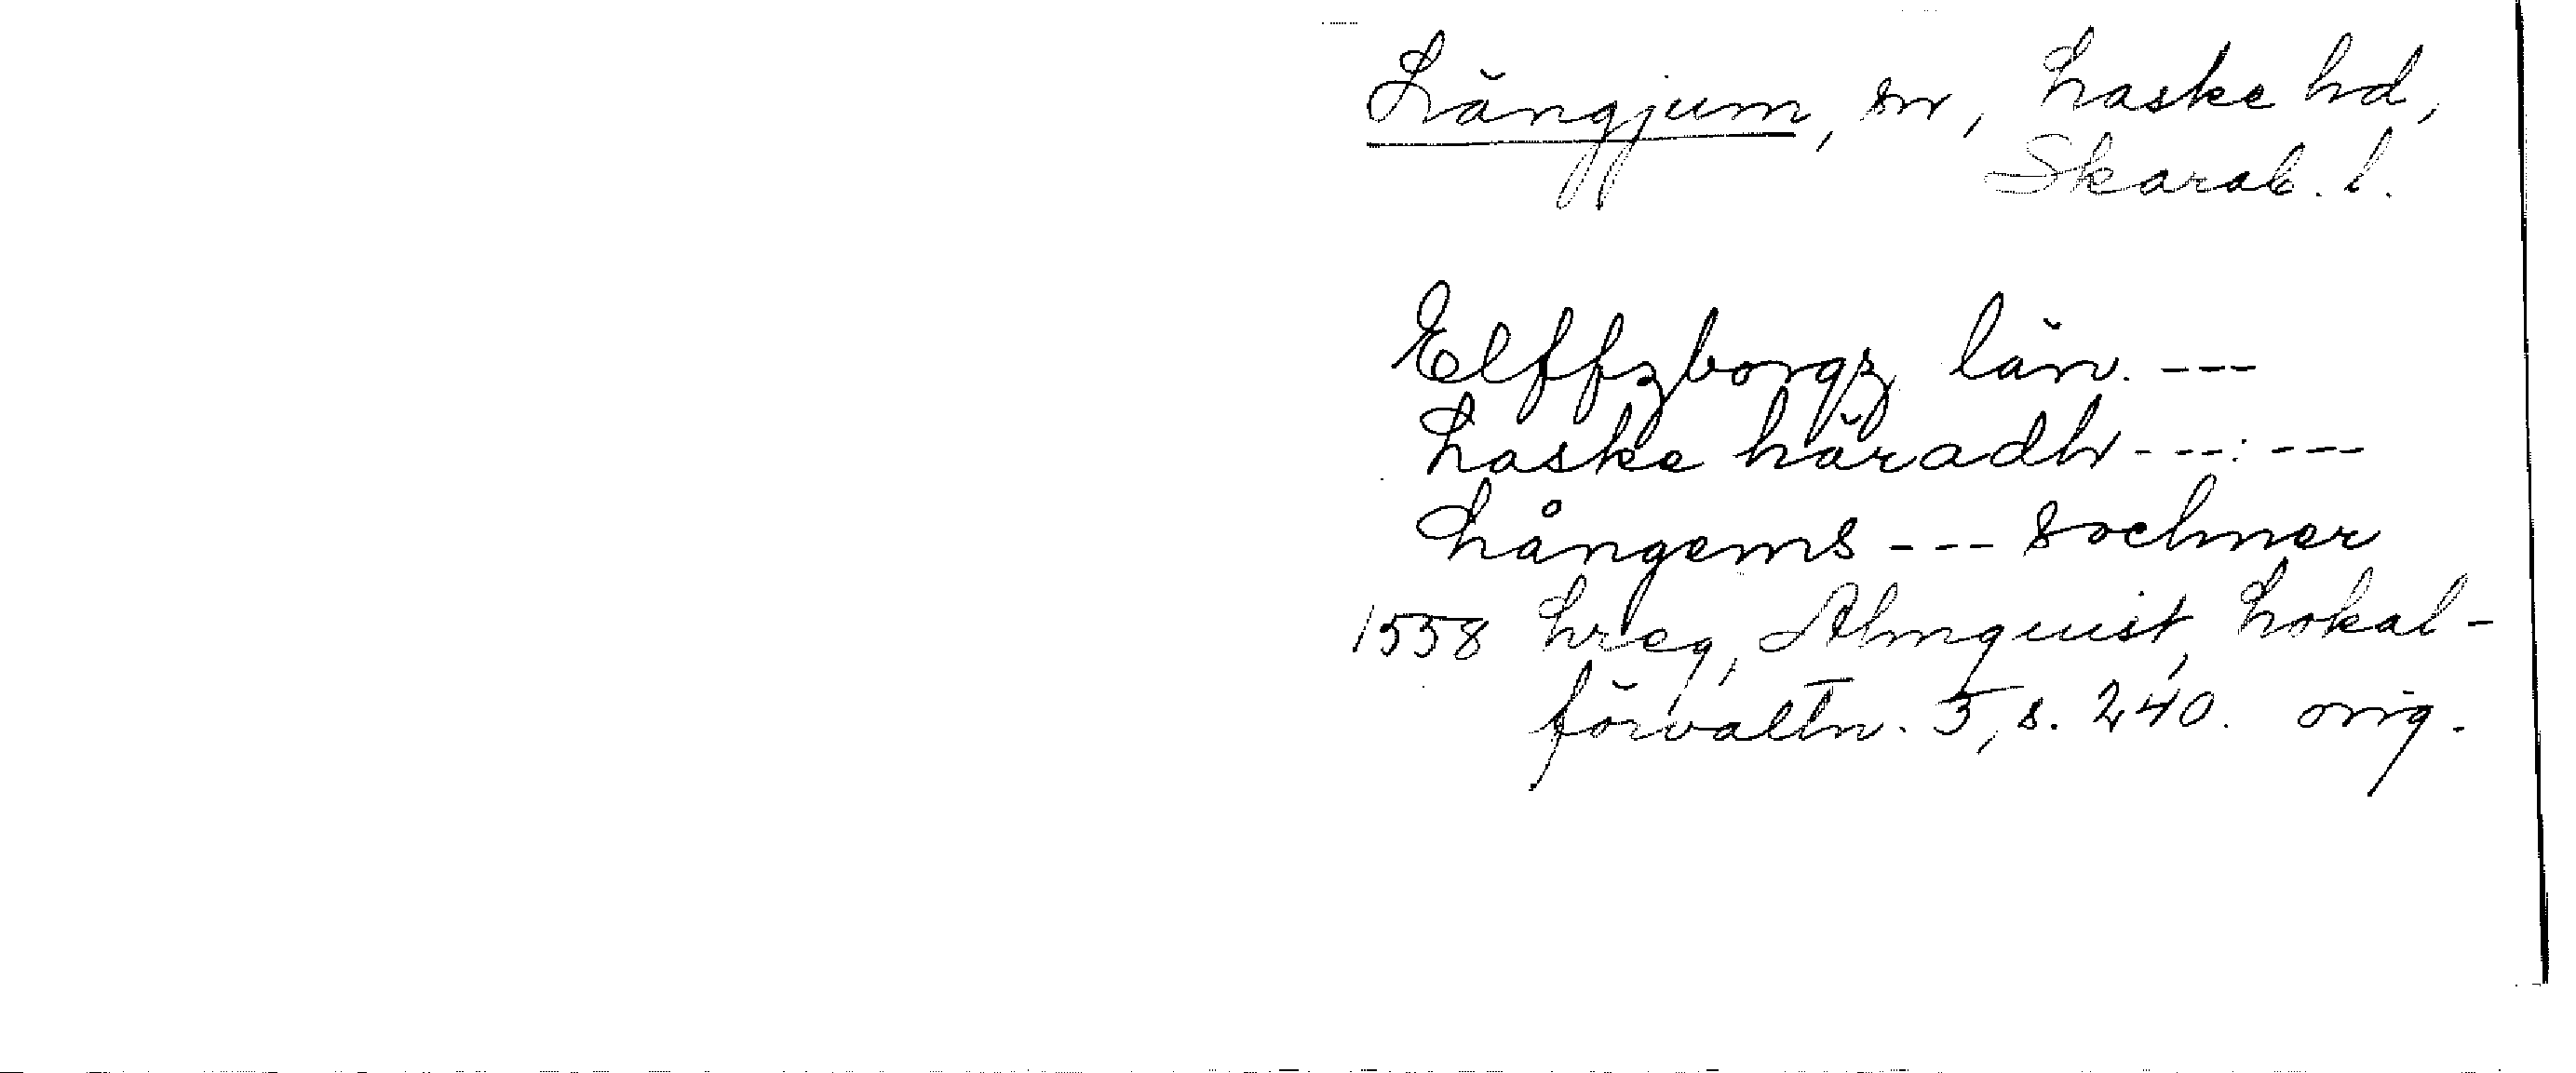 Långjum, sn, Laske hd,
Skarab. l.
Elffzborgz län. ---
Laske häradh ---:---
Långems --- sochner
1558 Lreg, Almquist, Lokal-
förvaltn. 5, s. 240. orig.